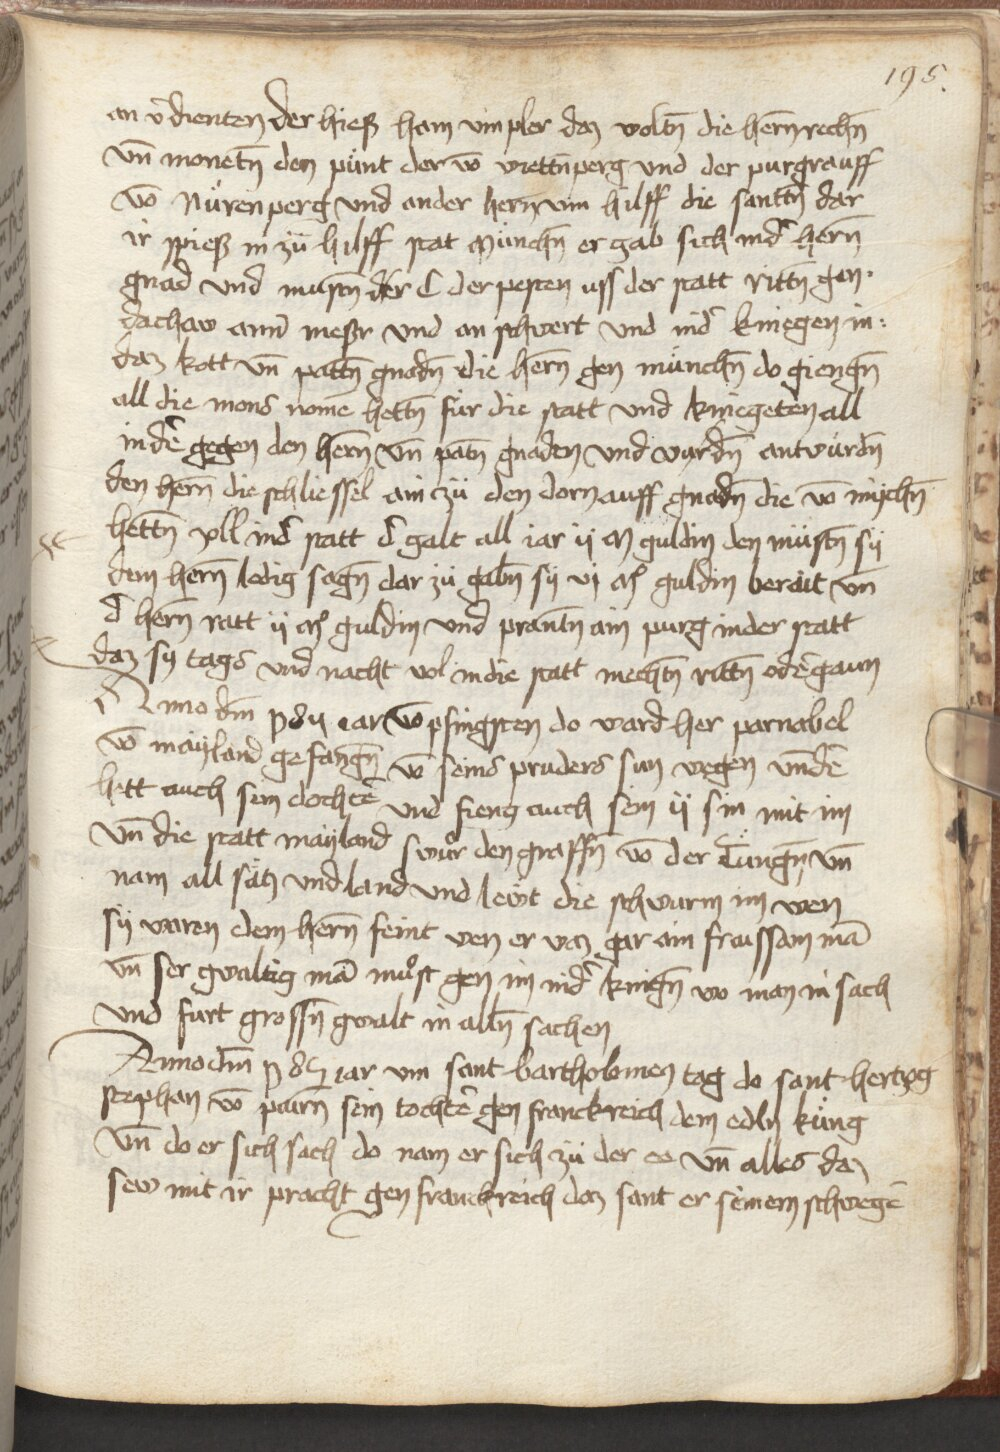 195.
an v̄dienten der hieß ham vimpler daz woltn̄ die hern̄ rechn̄
vn̄ monetn̄ den pünt der vō wirttn̄perg vnd der purgrauff
vō Nürenperg vnd ander hern̄ vm hilff die santtn̄ dar
ir spieß in zü hilff stat Münchn̄ er gab sich in d̄ hern̄
gnad vnd mustn̄ der C der pesten uss der statt rittn̄ gen
dachaw ann̄ messr vnd an schwert vnd in d̄ kniegen in
daz kott vn̄ pattn̄ gnadn̄ die hern̄ gen münchn̄ do giengn̄
all die mons nome hettn̄ für die statt vnd kniegeten all
in dē gegen den hern̄ vn̄ patn̄ gnaden vnd wurdn̄ antwürdn̄
den hern̄ die schliessel ain zü den dorn auff gnadn̄ die vō mychn̄
hettn̄ in d̄ statt d̄ galt all iar ij M guldin den müstn̄ sy
dem hern̄ ledig sagn̄ dar zü gabn̄ sy vj M guldin berait vn̄
d̄ hern̄ ratt ij M guldin vnd prantn̄ ain purg in der statt
daz sy tags vnd nacht wol in die statt mechtn̄ rittn̄ odē gaun
Anno dm̄ iar vō pfingsten do ward her parnabel
vō mayland gefangn̄ vō seins pruders sun wegen vn̄ dē
hett auch sein dochtē vnd fieng auch sein ij sin mit im
vn̄ die statt mayland swůr den graffn̄ vō der Tüngn̄ vn̄
nam all sätz vnd land vnd lewt die schwurm im wen
sy waren dem hern̄ feint wen er waz gar ain fraussam mā
vn̄ ser gwaltig mā můst gen im in d̄ knign̄ wo man in sach
vnd furt grossn̄ gwalt in alln̄ sachen
Anno dm̄ iar vm sant bartholomen tag do sant hertzog
stephan vō pairn̄ sein tochtē gen franckreich dem edln küng
vn̄ do er sich sach do nam er sich zü der ee vn̄ alles daz
sew mit ir pracht gen franckreich daz sant er seinem schwegē